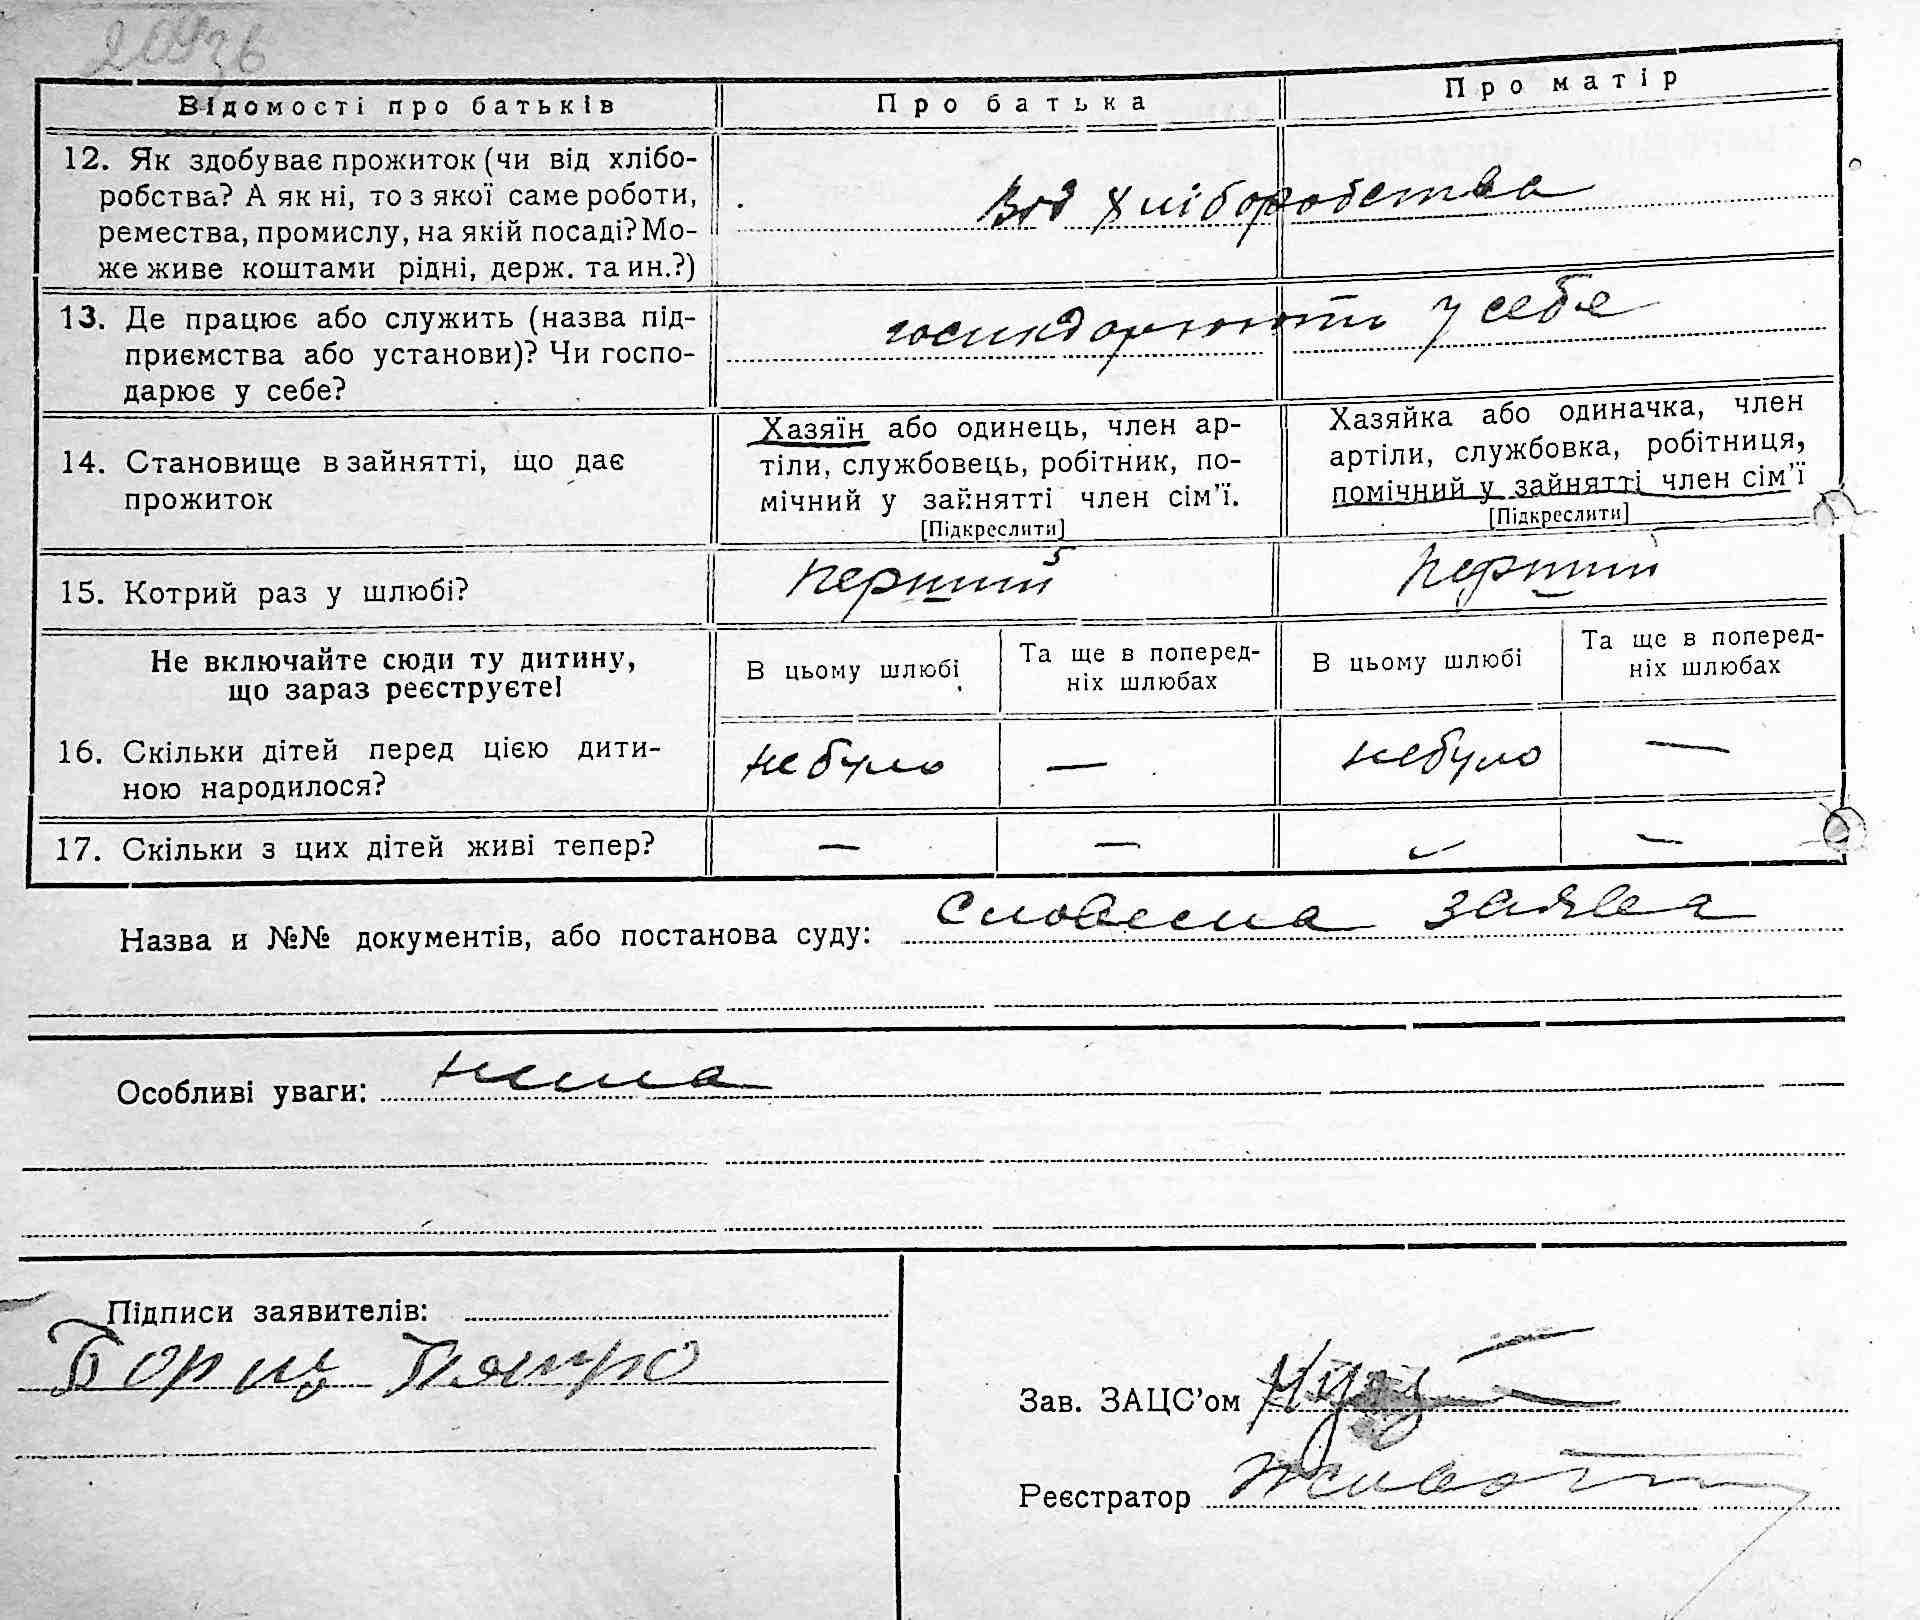 Відомості про батьків Про батька Про матір
12. Як здобуває прожиток (чи від хлібо-
робства? А як ні, то з якої саме роботи,
ремества, промислу, на якій посаді? Мо-
же живе коштами рідні, держ. та ин.?)
Від хліборобства
13. Де працює або служить (назва під-
приємства або установи)? Чи госпо-
дарює у себе?
господарюють у себе
14. Становище в зайнятті, що дає
прожиток
Хазяїн або одинець, член ар-
тіли, службовець, робітник, по-
мічний у зайнятті член сім'ї.
[Підкреслити]
Хазяйка або одиначка, член
артіли, службовка, робітниця,
помічний у зайнятті член сім'ї
[Підкреслити]
15. Котрий раз у шлюбі? перший перший
Не включайте сюди ту дитину,
що зараз реєструєте!
В цьому шлюбі
Та ще в поперед-
ніх шлюбах
В цьому шлюбі
Та ще в поперед-
ніх шлюбах
16. Скільки дітей перед цією дити-
ною народилося?
небуло — небуло —
17. Скільки з цих дітей живі тепер? — — — —
Назва и №№ документів, або постанова суду: Словесна заява
Особливі уваги: нема
Підписи заявителів:
Борец Петро
Зав. ЗАЦС'ом
Реєстратор